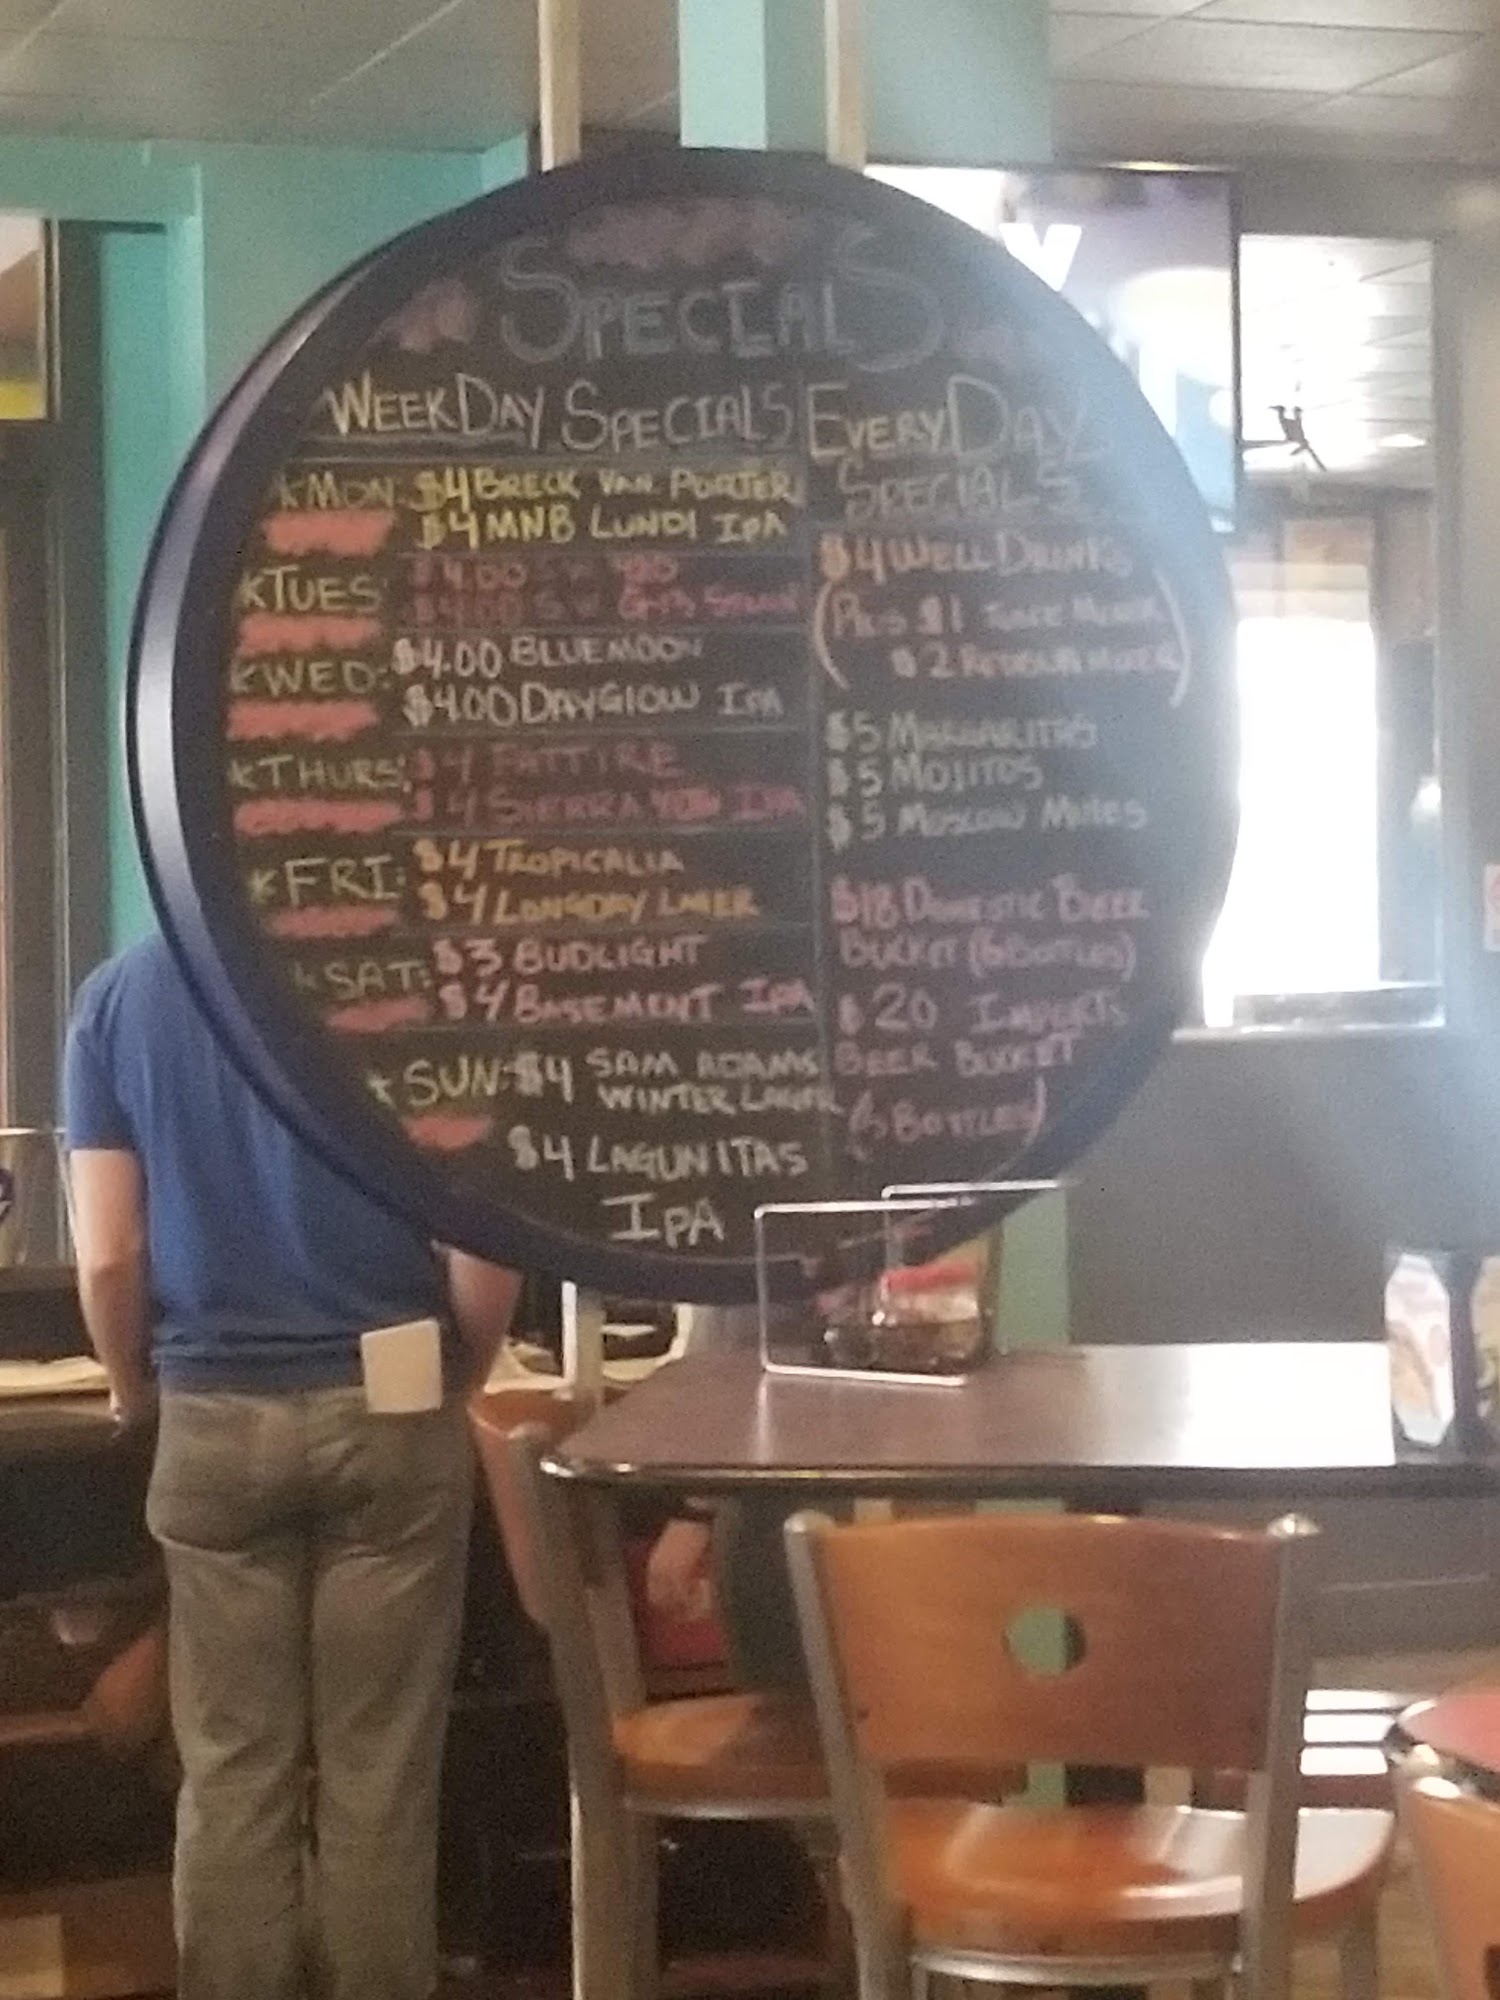 SPECIALS
WEEKDAY SPECIALS
*MON: $4 BRECK VAN. PORTER
$4 MNB LUNDI IPA
*TUES: $4.00 SW 420
$4.00 SW
*WED: $4.00 BLUEMOON
$4.00 DAYGLOW IPA
*THURS: $4 FATTIRE
$4 SIERRA IPA
*FRI: $4 TROPICALIA
$4 LONGDAY LAGER
*SAT: $3 BUDLIGHT
$4 BASEMENT IPA
*SUN: $4 SAM ADAMS
WINTER LAGER
$4 LAGUNITAS
IPA
EVERYDAY
SPECIALS
$4 WELL DRINKS
(PLUS $1 JUICE MIXER
$2 REDBULL MIXER)
$5 MARGARITAS
$5 MOJITOS
$5 MOSCOW MULES
$18 DOMESTIC BEER
BUCKET (6 BOTTLES)
$20 IMPORTS
BEER BUCKET
BOTTLES)